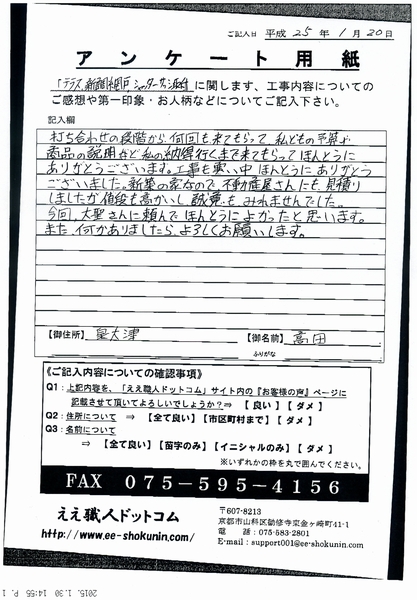 ご記入日 平成 25 年 1 月 20 日
アンケート用紙
に関します、工事内容についての
ご感想や第一印象・お人柄などについてご記入下さい。
記入欄
打ち合わせの段階から、何回も来てもらって、私どもの予算や
商品の説明など私の納得行くまで来てもらってほんとうに
ありがとうございます。工事も寒い中ほんとうにありがとう
ございました。新築の家なので、不動産屋さんにも、見積り
しましたが値段も高かいし、誠意もみれませんでした。
今回、大聖さんに頼んでほんとうによかったと思います。
また何かありましたら、よろしくお願いします。
【御住所】 大津 【御名前】 高田
ふりがな
《ご記入内容についての確認事項》
Q1:上記内容を、「ええ職人ドットコム」サイト内の『お客様の声』ページに
記載させて頂いてよろしいでしょうか?⇒ 【 良い 】 【 ダメ 】
Q2:住所について ⇒ 【全て良い】【市区町村まで】【 ダメ 】
Q3:名前について
⇒ 【全て良い】【苗字のみ】【イニシャルのみ】【 ダメ 】
※いずれかの枠を丸で囲んでください。
FAX 075-595-4156
ええ職人ドットコム
http://www.ee-shokunin.com/
〒607-8213
京都市山科区勧修寺東金ヶ崎町41-1
電話:075-583-2801
E-mail:support001@ee-shokunin.com
2015. 1. 30 14:55 P. 1